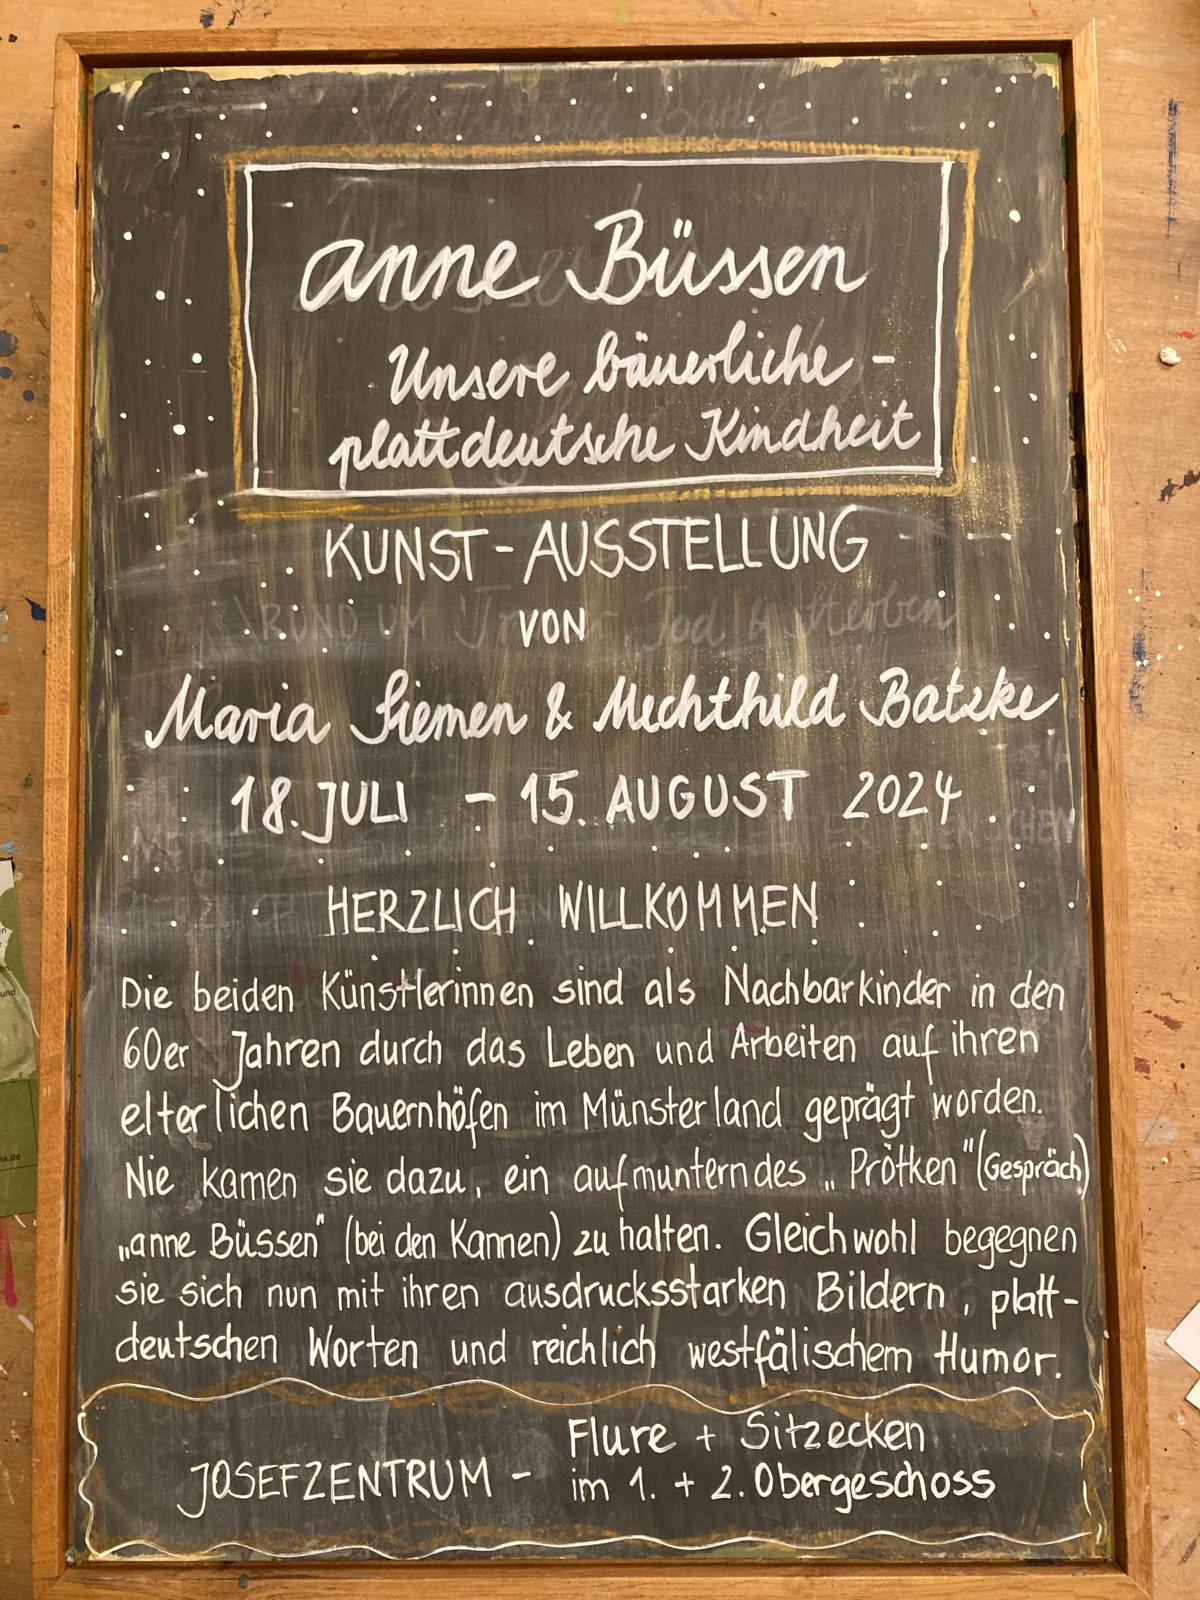 anne Büssen
Unsere bäuerliche -
plattdeutsche Kindheit
KUNST - AUSSTELLUNG
VON
Maria Siemen & Mechthild Batzke
18. JULI - 15. AUGUST 2024
HERZLICH WILLKOMMEN
Die beiden Künstlerinnen sind als Nachbarkinder in den
60er Jahren durch das Leben und Arbeiten auf ihren
elterlichen Bauernhöfen im Münsterland geprägt worden.
Nie kamen sie dazu, ein aufmunterndes „Pròtken" (Gespräch)
„anne Büssen" (bei den Kannen) zu halten. Gleichwohl begegnen
sie sich nun mit ihren ausdrucksstarken Bildern, platt-
deutschen Worten und reichlich westfälischem Humor.
Flure + Sitzecken
JOSEFZENTRUM - im 1. + 2. Obergeschoss